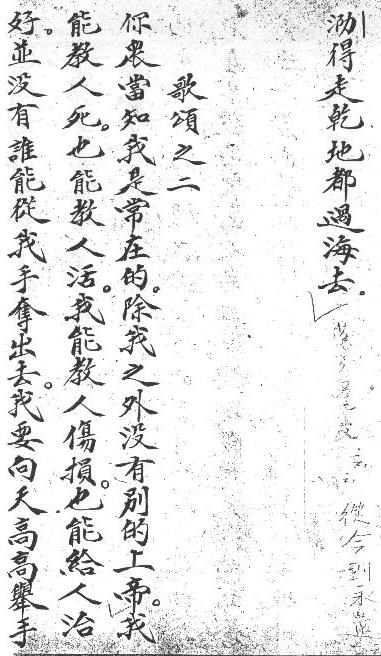 得走乾地都過海去。
從今到永遠
歌頌之二
你眾當知我是常在的。除我之外没有別的上帝。我
能教人死。也能教人活。我能教人傷損。也能給人治
好。並没有誰能從我手奪出去。我要向天高高舉手